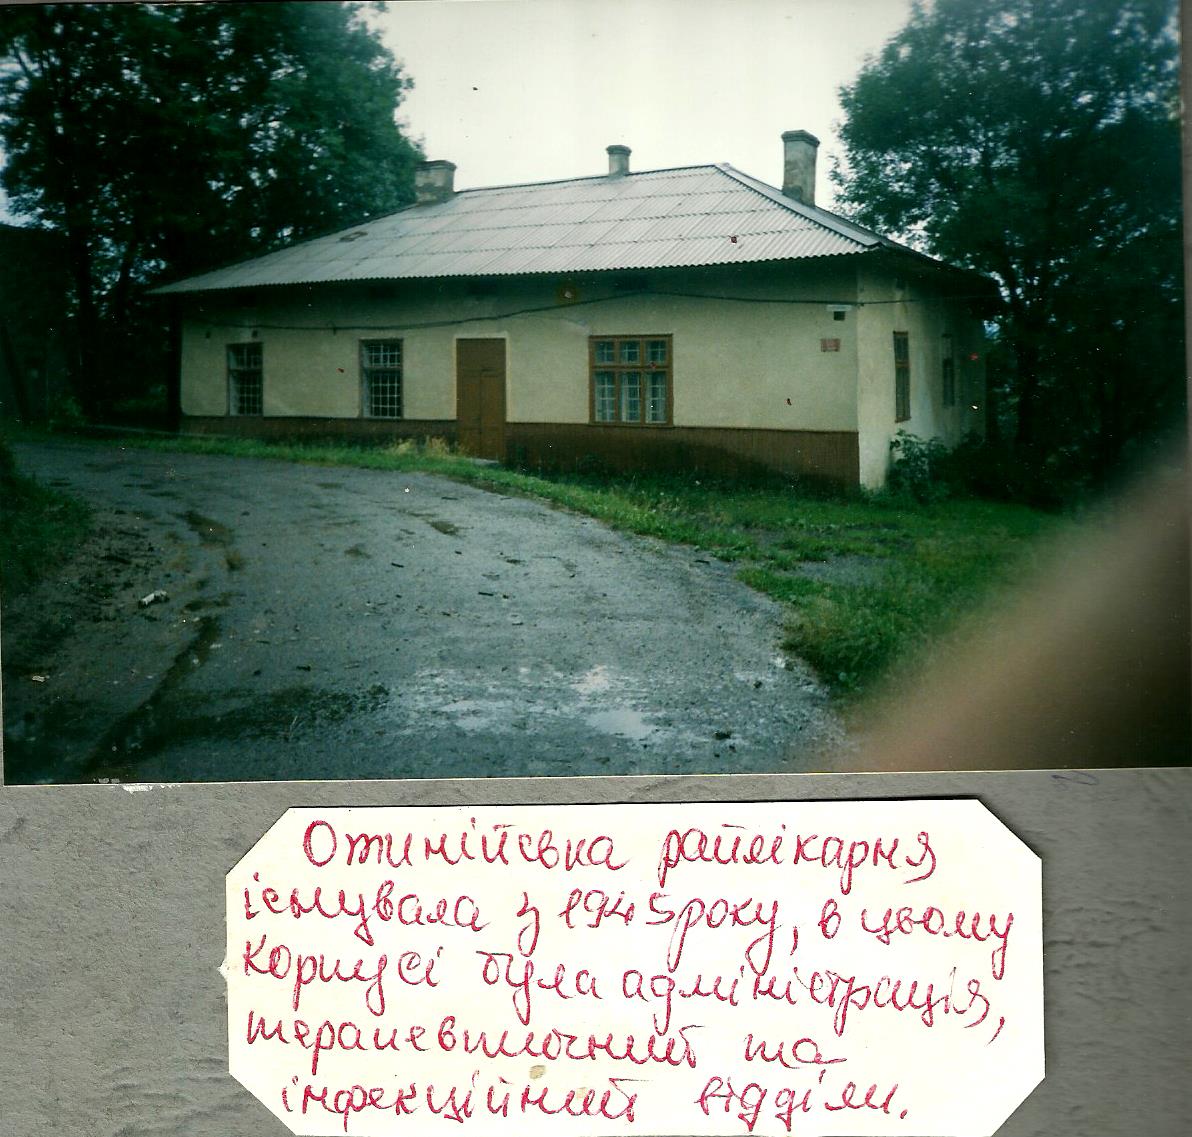 Отинійська райлікарня
існувала з 1945 року, в цьому
корпусі була адміністрація,
терапевтичний та
інфекційний відділи.